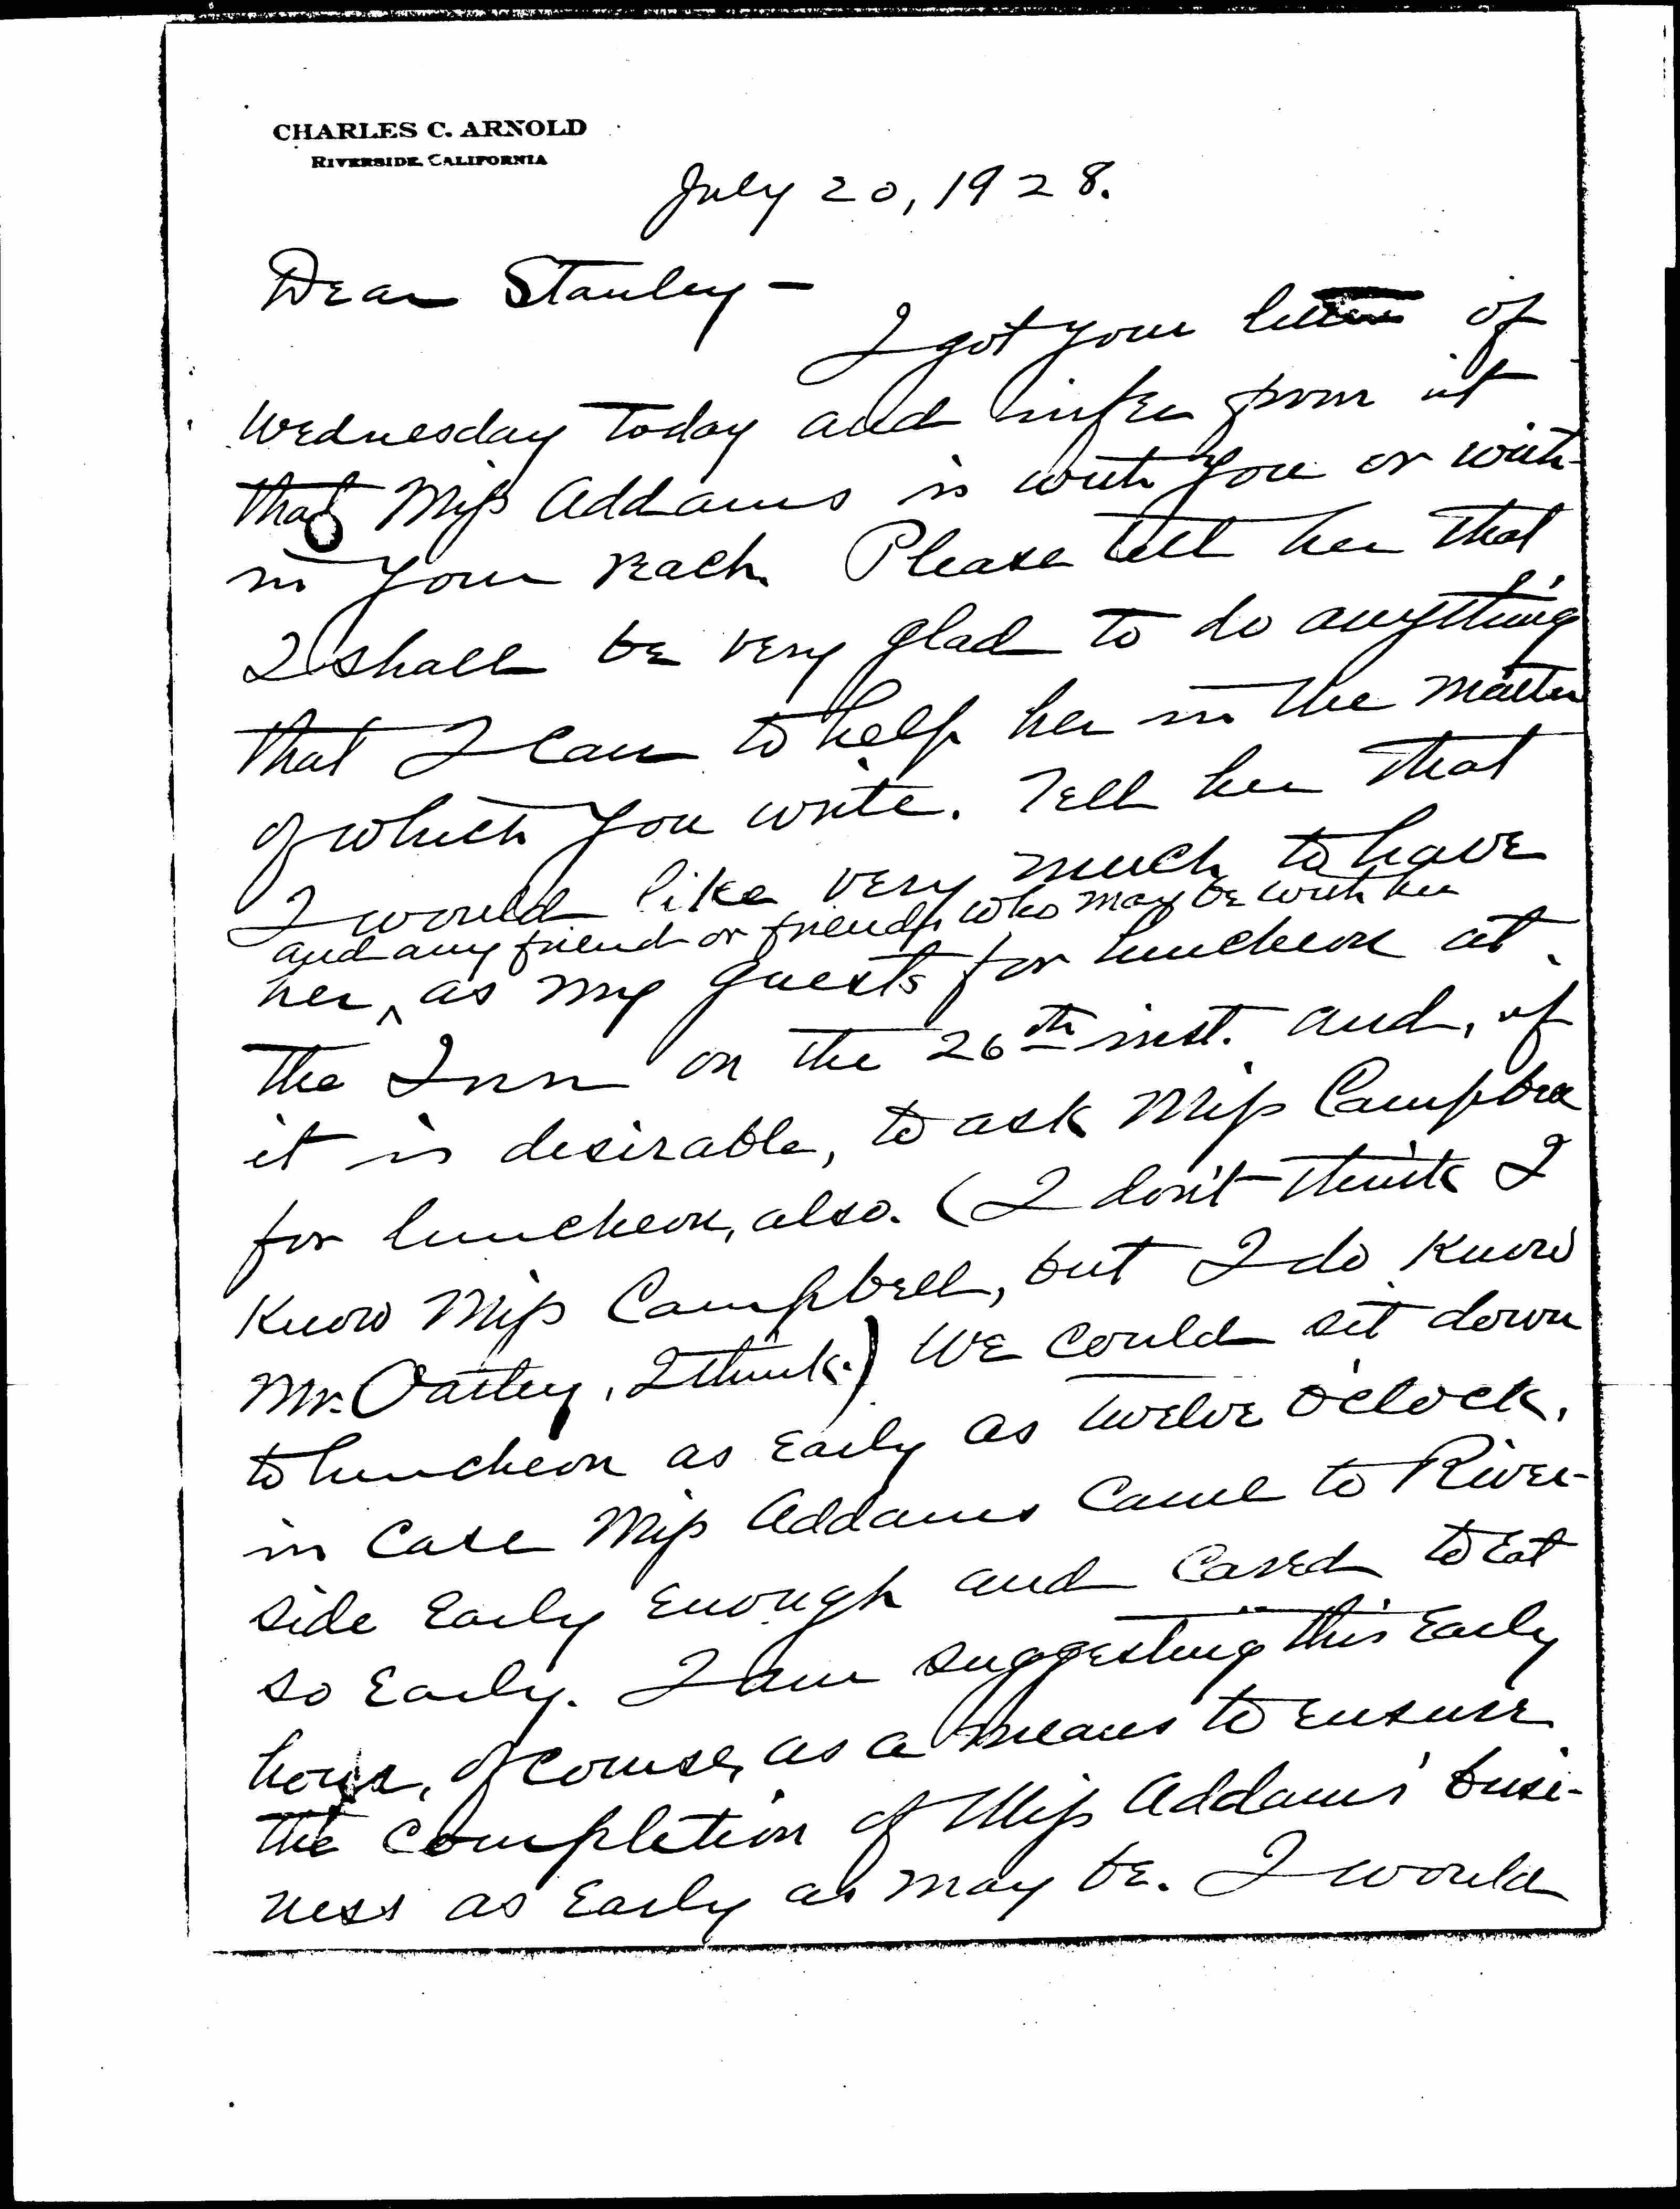 CHARLES C. ARNOLD
RIVERSIDE, CALIFORNIA
July 20, 1928.
Dear Stanley –
I got your letter of
Wednesday today and infer from it
that Miss Addams is with you or with-
in your reach. Please tell her that
I shall be very glad to do anything
that I can to help her in the matter
of which you write. Tell her that
I would like very much to have
and any friend or friends who may be with her
her ^ as my guests for luncheon at
the Inn on the 26th inst. and, if
it is desirable, to ask Miss Campbell
for luncheon, also. (I don't think I
know Miss Campbell, but I do know
Mr. Oatley, I think.) We could sit down
to luncheon as early as twelve o'clock,
in case Miss Addams came to River-
side early enough and cared to eat
so early. I am suggesting this early
hour, of course, as a means to ensure
the completion of Miss Addams' busi-
ness as early as may be. I would